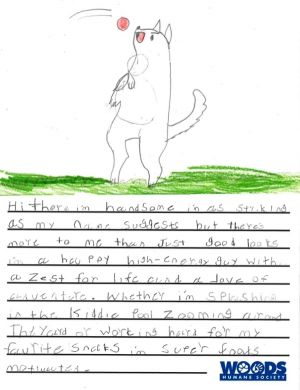 Hi there im handsome im as striking
as my name suggests but theres
more to me than just good looks
im a happy high-energy guy with
a zest for life and a love of
adventure. Whether im splashing
in the kiddie pool zooming around
the yard or working hard for my
favorite snacks im super foods
motivated.
WOODS
HUMANE SOCIETY